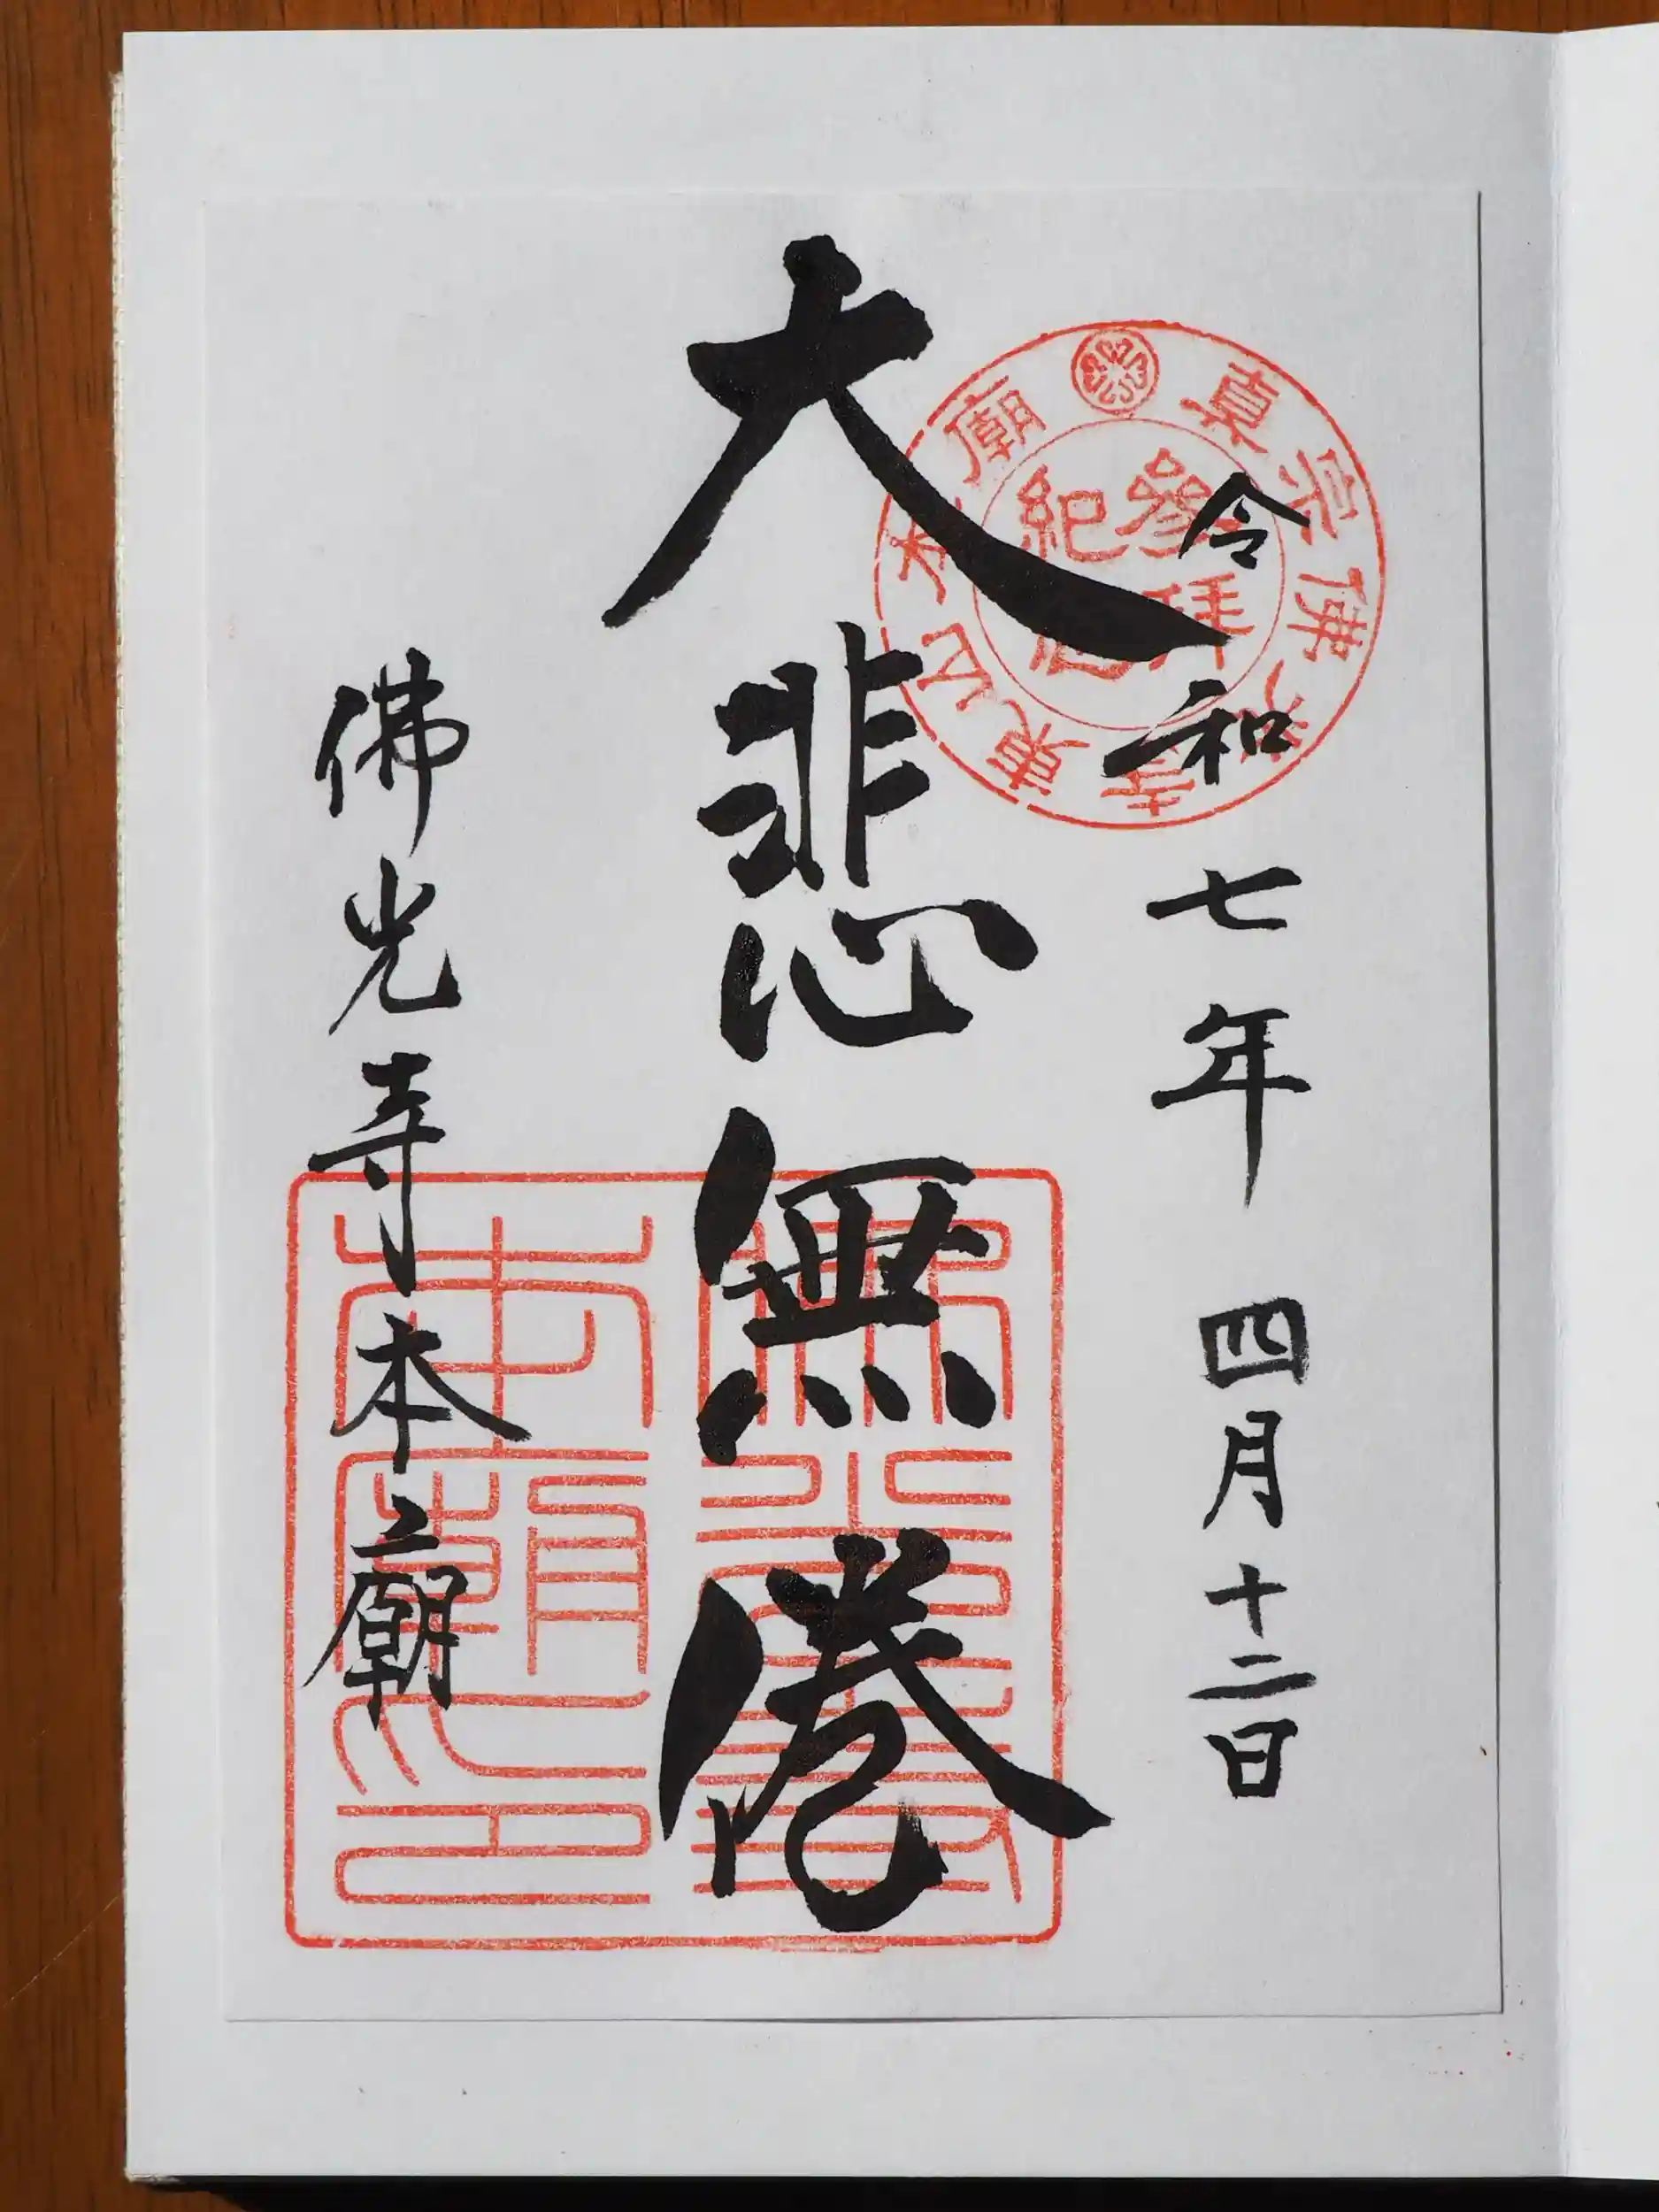 令和七年四月十二日
大悲無倦
佛光寺本廟
真宗佛光寺東山本廟
參拜
紀念
佛光寺
本廟印